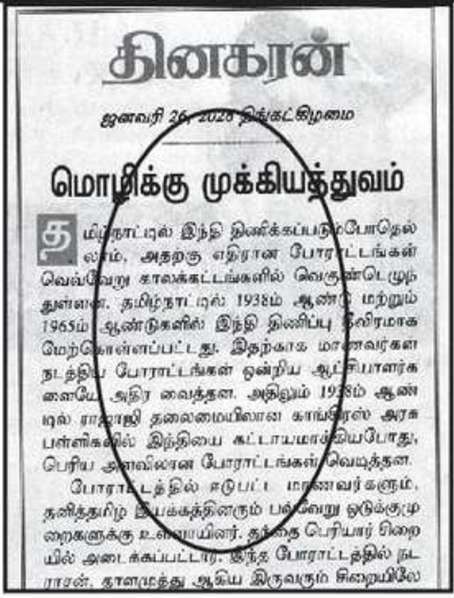 தினகரன்
ஜனவரி 26, 2026 திங்கட்கிழமை
மொழிக்கு முக்கியத்துவம்
தமிழ்நாட்டில் இந்தி திணிக்கப்படும்போதெல்
லாம், அதற்கு எதிரான போராட்டங்கள்
வெவ்வேறு காலக்கட்டங்களில் வெகுண்டெழுந்
துள்ளன. தமிழ்நாட்டில் 1938ம் ஆண்டு மற்றும்
1965ம் ஆண்டுகளில் இந்தி திணிப்பு தீவிரமாக
மேற்கொள்ளப்பட்டது. இதற்காக மாணவர்கள்
நடத்திய போராட்டங்கள் ஒன்றிய ஆட்சியாளர்க
ளையே அதிர வைத்தன. அதிலும் 1938ம் ஆண்
டில் ராஜாஜி தலைமையிலான காங்கிரஸ் அரசு
பள்ளிகளில் இந்தியை கட்டாயமாக்கியபோது,
பெரிய அளவிலான போராட்டங்கள் வெடித்தன.
போராட்டத்தில் ஈடுபட்ட மாணவர்களும்,
தனித்தமிழ் இயக்கத்தினரும் பல்வேறு ஒடுக்குமு
றைகளுக்கு உள்ளாயினர். தந்தை பெரியார் சிறை
யில் அடைக்கப்பட்டார். இந்த போராட்டத்தில் நட
ராசன், தாளமுத்து ஆகிய இருவரும் சிறையிலே